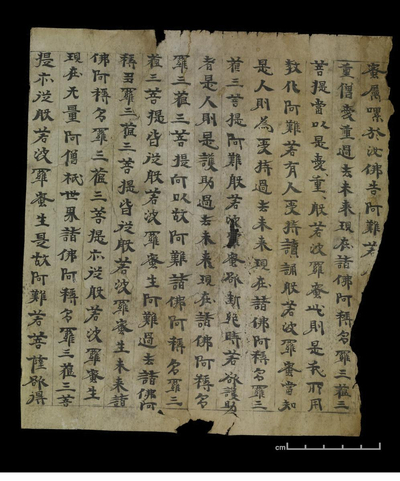 蜜囑累於汝佛告阿難若
重僧愛重過去未来現在諸佛阿耨多羅三藐三
菩提當以是愛重般若波羅蜜此則是我所用
教化阿難若有人受持讀誦般若波羅蜜當知
是人則為受持過去未来現在諸佛阿耨多羅三
藐三菩提阿難般若波羅蜜欲斷絕時若欲護助
者是人則是護助過去未来現在諸佛阿耨多
羅三藐三菩提何以故阿難諸佛阿耨多羅三
藐三菩提皆從般若波羅蜜生阿難過去諸佛阿
耨多羅三藐三菩提皆從般若波羅蜜生未来諸
佛阿耨多羅三藐三菩提亦從般若波羅蜜生
現在无量阿僧祇世界諸佛阿耨多羅三藐三菩
提亦從般若波羅蜜生是故阿難若菩薩欲得
cm